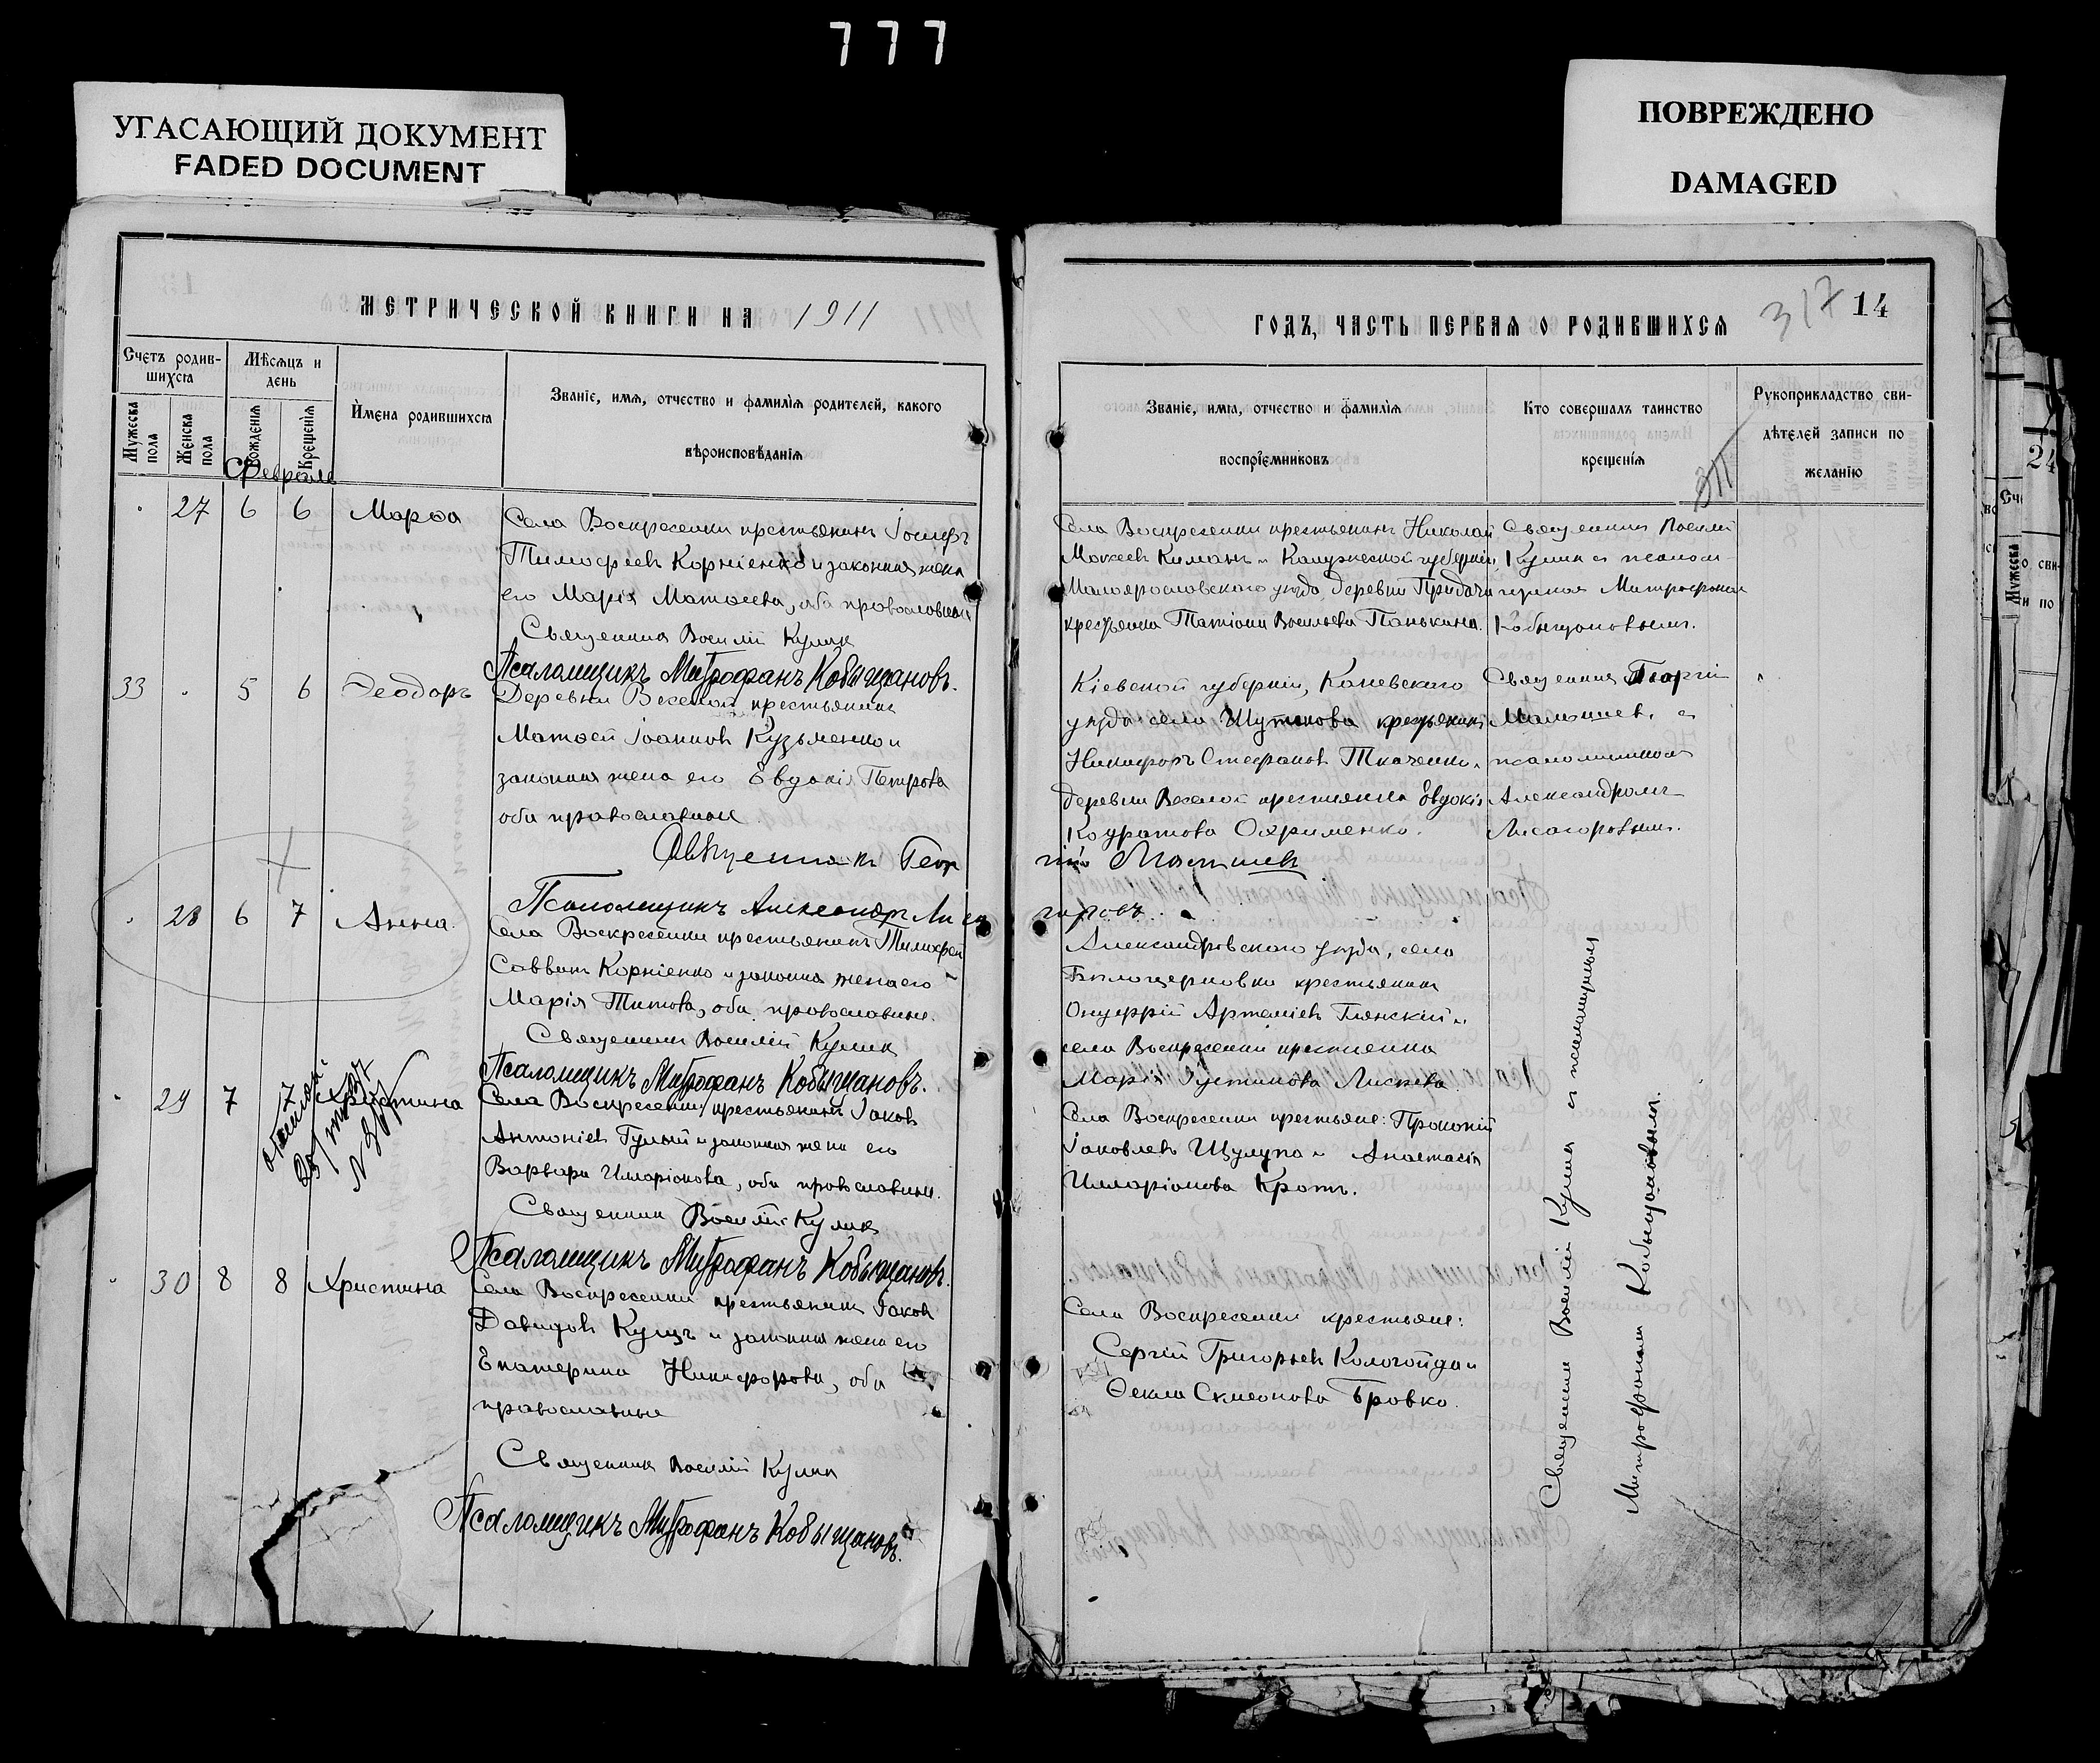 777
УГАСАЮЩИЙ ДОКУМЕНТ
FADED DOCUMENT
ПОВРЕЖДЕНО
DAMAGED
МЕТРИЧЕСКОЙ КНИГИ НА 1911
Счетъ родившихся
Мѣсяцъ и день
Имена родившихся
Званіе, имя, отчество и фамилія родителей, какого вѣроисповѣданія
Мужеска пола
Женска пола
Рожденія
Крещенія
Февраль
27 6 6 Марѳа
Села Воскресенки крестьянинъ Іосифъ
Тимофеевъ Корніенко и законная жена
его Марія Матѳеева, оба православные
Священник Василій Кулик
Псаломщикъ Митрофанъ Кобыщановъ.
33 5 6 Ѳеодоръ
Деревни Веселой крестьянинъ
Матѳей Іоанновъ Кузьменко и
законная жена его Евдокія Петрова
оба православные
Священникъ Геор
Псаломщикъ Александръ Лиса
28 6 7 Анна
Села Воскресенки крестьянинъ Тимофей
Саввинъ Корніенко и законна жена его
Марія Титова, оба православные.
Священник Василій Кулик
Псаломщикъ Митрофанъ Кобыщановъ.
29 7 7 Христина
Села Воскресенки крестьянинъ Іаковъ
Антоніевъ Гулый и законная жена его
Варвара Иларіонова, оба православные.
Священник Василій Кулик
Псаломщикъ Митрофанъ Кобыщановъ.
30 8 8 Христина
Села Воскресенки крестьянинъ Іаковъ
Давидовъ Кущъ и законная жена его
Екатерина Никифорова, оба
православные
Священник Василій Кулик
Псаломщикъ Митрофанъ Кобыщановъ.
ГОДЪ, ЧАСТЬ ПЕРВАЯ О РОДИВШИХСЯ
317
14
Званіе, имя, отчество и фамилія воспріемниковъ
Кто совершалъ таинство крещенія
Рукоприкладство свидѣтелей записи по желанію
Села Воскресенки крестьянинъ Николай
Мокеевъ Киманъ и Калужской губерніи,
Малоярославскаго уѣзда, деревни Придачи
крестьянка Татіана Васильева Панькина.
Священник Василій
Кулик съ псалом-
щиком Митрофаномъ
Кобыщановымъ.
Кіевской губерніи, Каневскаго
уѣзда села крестьянинъ
Никифоръ Стефановъ Ткаченко и
деревни Веселой крестьянка Евдокія
Кодратова Охрименко.
Священник Георгій
съ
псаломщикомъ
Александромъ
Лисогоровымъ.
горовъ.
Александровскаго уѣзда, села
Бѣлоцерковки крестьянинъ
Онуфрій Артеміевъ Глянскій и
села Воскресенки крестьянка
Марія Іустинова
Села Воскресенки крестьяне: Прокопій
Іаковлевъ Щулупа и Анастасія
Илларіонова Кротъ.
Села Воскресенки крестьяне:
Сергій Григорьевъ Кологойда и
Ѳекла Симеонова Бровко.
Священник Василій Кулик съ псаломщикомъ
Митрофаномъ Кобыщановымъ.
24